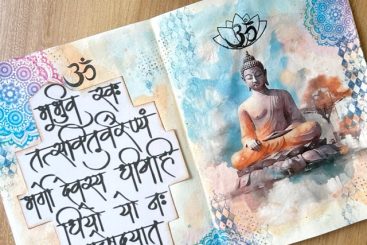 ॐ
भूर्भुव स्वः
तत्सवितुर्वरेण्यं
भर्गो देवस्य धीमहि
धियो यो नः
ॐ